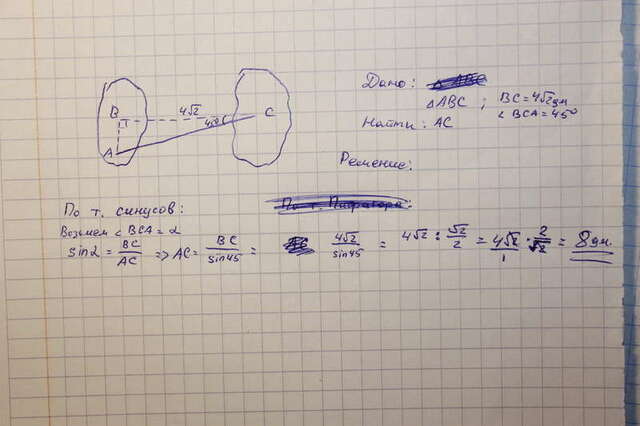 Дано:
△ABC ; BC = 4√2 дм
∠BCA = 45°
Найти: AC
Решение:
B 4√2 45° C
A
По т. синусов:
Возьмем ∠BCA = α
sin α = BC/AC => AC = BC/sin45 = 4√2/sin45 = 4√2 : √2/2 = 4√2/1 · 2/√2 = 8 дм.